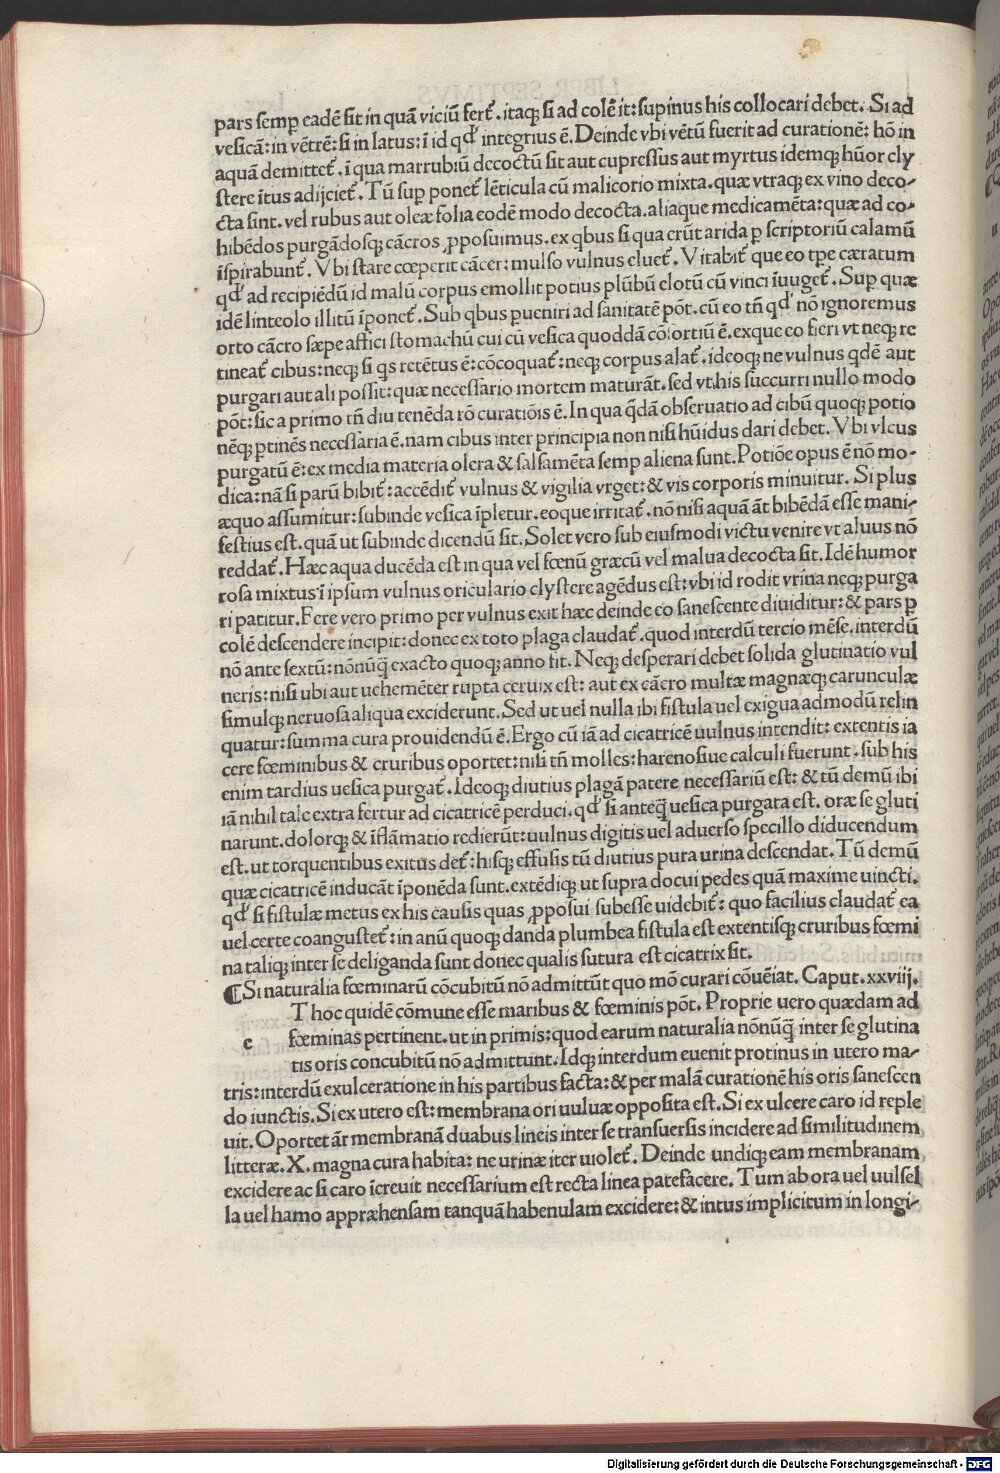 pars semꝑ eadē sit in quā viciū fert᷑. itaqꝫ si ad colē it: supinus his collocari debet. Si ad
vesicā: in vētrē: si in latus: ī id qď integrius ē. Deinde vbi vētū fuerit ad curationē: hō in
aquā demittet᷑. ī qua marrubiū decoctū sit aut cupressus aut myrtus idemqꝫ hūor cly
stere ītus adijciet᷑. Tū suꝑ ponet᷑ lēticula cū malicorio mixta. quæ vtraqꝫ ex vino deco-
cta sint. vel rubus aut oleæ folia eodē modo decocta. aliaque medicamēta: quæ ad co-
hibēdos purgādosqꝫ cācros ꝓposuimus. ex qbus si qua erūt arida ꝑ scriptoriū calamū
īspirabunt᷑. Vbi stare cœperit cācer: mulso vulnus eluet᷑. Vitabit᷑ que eo tꝑe cæratum
qď ad recipiēdū id malū corpus emollit potius plūbū elotū cū vinci īuuget᷑. Suꝑ quæ
idē linteolo illitū īponet᷑. Sub qbus ꝑueniri ad sanitatē pōt. cū eo tñ qď nō ignoremus
orto cācro sæpe affici stomachū cui cū vesica quoddā cōsortiū ē. exque eo fieri vt neqꝫ re
tineat᷑ cibus: neqꝫ si qs retētus ē: cōcoquat᷑: neqꝫ corpus alat᷑. ideoqꝫ ne vulnus qdē aut
purgari aut ali possit: quæ necessario mortem maturāt. sed vt his succurri nullo modo
pōt: sic a primo tñ diu tenēda rō curatiōis ē. In qua q̄dā obseruatio ad cibū quoqꝫ potio
nēqꝫ ꝑtinēs necessaria ē. nam cibus inter principia non nisi hūidus dari debet. Vbi vlcus
purgatū ē: ex media materia olera & salsamēta semꝑ aliena sunt. Potiōe opus ē nō mo-
dica: nā si parū bibit᷑: accēdit᷑ vulnus & vigilia vrget: & vis corporis minuitur. Si plus
æquo assumitur: subinde vesica īpletur. eoque irritat᷑. nō nisi aquā āt bibēdā esse mani-
festius est. quā ut subinde dicendū sit. Solet vero sub eiusmodi victu venire vt aluus nō
reddat᷑. Hæc aqua ducēda est in qua vel fœnū græcū vel malua decocta sit. Idē humor
rosa mixtus ī ipsum vulnus oriculario clystere agēdus est: vbi id rodit vrina neqꝫ purga
ri patitur. Fere vero primo per vulnus exit hæc deinde eo sanescente diuiditur: & pars ꝑ
colē descendere incipit: donec ex toto plaga claudat᷑. quod interdū tercio mēse. interdū
nō ante sextū: nōnūq̄ exacto quoqꝫ anno fit. Neqꝫ desperari debet solida glutinatio vul
neris: nisi ubi aut uehemēter rupta ceruix est: aut ex cācro multæ magnæqꝫ carunculæ
simulqꝫ neruosa aliqua exciderunt. Sed ut uel nulla ibi fistula uel exigua admodū relin
quatur: summa cura prouidendū ē. Ergo cū iā ad cicatricē uulnus intendit: extentis ia
cere fœminibus & cruribus oportet: nisi tñ molles: harenosiue calculi fuerunt. sub his
enim tardius uesica purgat᷑. Ideoqꝫ diutius plagā patere necessariū est: & tū demū ibi
iā nihil tale extra fertur ad cicatricē perduci. qď si anteq̄ uesica purgata est. oræ se gluti
narunt. dolorqꝫ & īflāmatio redierūt: uulnus digitis uel aduerso specillo diducendum
est. ut torquentibus exitus det᷑: hisqꝫ effusis tū diutius pura urina descendat. Tū demū
quæ cicatricē inducāt īponēda sunt. extēdiqꝫ ut supra docui pedes quā maxime uincti.
qď si fistulæ metus ex his causis quas ꝓposui subesse uidebit᷑: quo facilius claudat᷑ ea
uel certe coangustet᷑: in anū quoqꝫ danda plumbea fistula est extentisqꝫ cruribus fœmi
na taliqꝫ inter se deliganda sunt donec qualis sutura est cicatrix sit.
¶ Si naturalia fœminarū cōcubitū nō admittūt quo mō curari cōuēiat. Caput. xxviij.
T hoc quidē cōmune esse maribus & fœminis pōt. Proprie uero quædam ad
e fœminas pertinent. ut in primis: quod earum naturalia nōnūq̄ inter se glutina
tis oris concubitū nō admittunt. Idqꝫ interdum euenit protinus in utero ma-
tris: interdū exulceratione in his partibus facta: & per malā curationē his oris sanescen
do iunctis. Si ex utero est: membrana ori uuluæ opposita est. Si ex ulcere caro id reple
uit. Oportet ār membranā duabus lineis inter se transuersis incidere ad similitudinem
litteræ. X. magna cura habita: ne urinæ iter uiolet᷑. Deinde undiqꝫ eam membranam
excidere ac si caro īcreuit necessarium est recta linea patefacere. Tum ab ora uel uulsel
la uel hamo appræhensam tanquā habenulam excidere: & intus implicitum in longi-
Digitalisierung gefördert durch die Deutsche Forschungsgemeinschaft - DFG